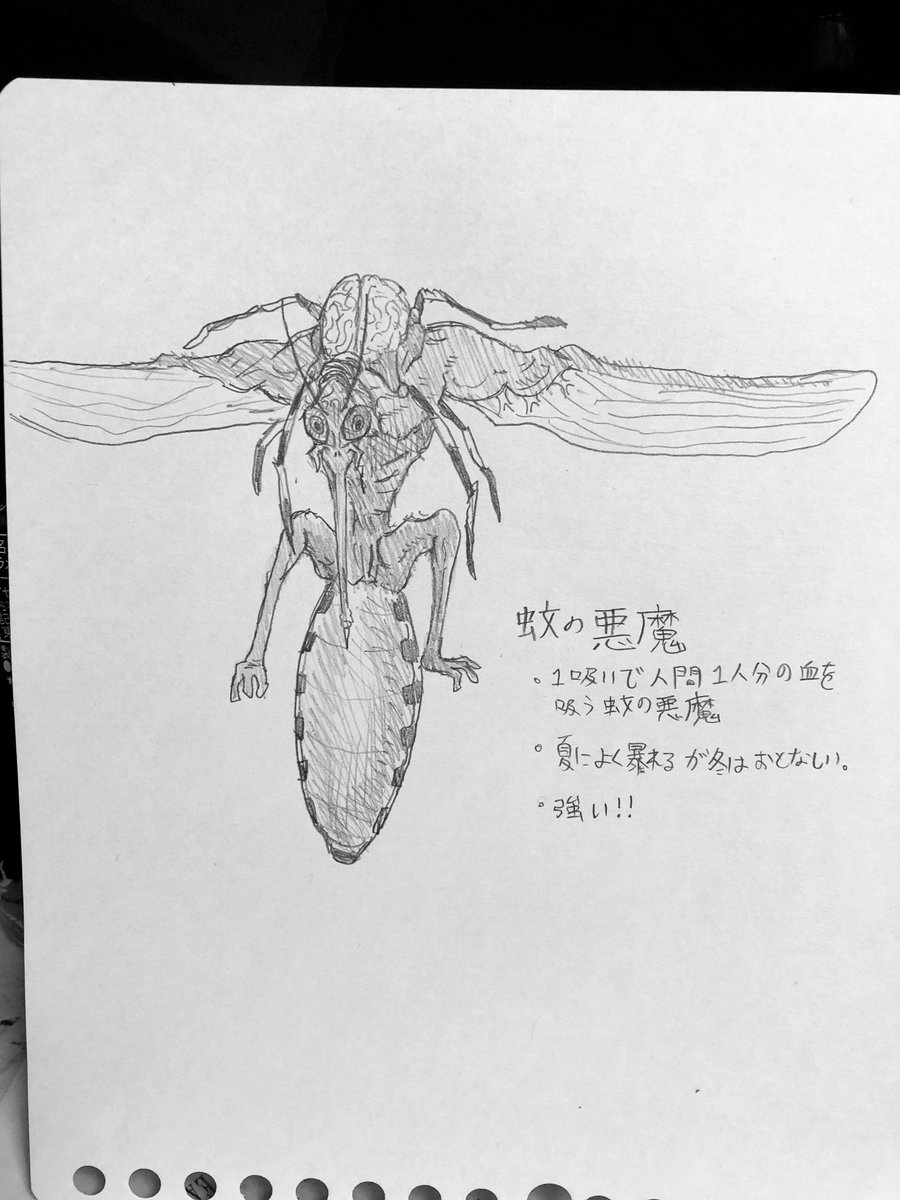 蚊の悪魔
。1吸いで人間1人分の血を
吸う蚊の悪魔
。夏によく暴れるが冬はおとなしい。
。強い!!